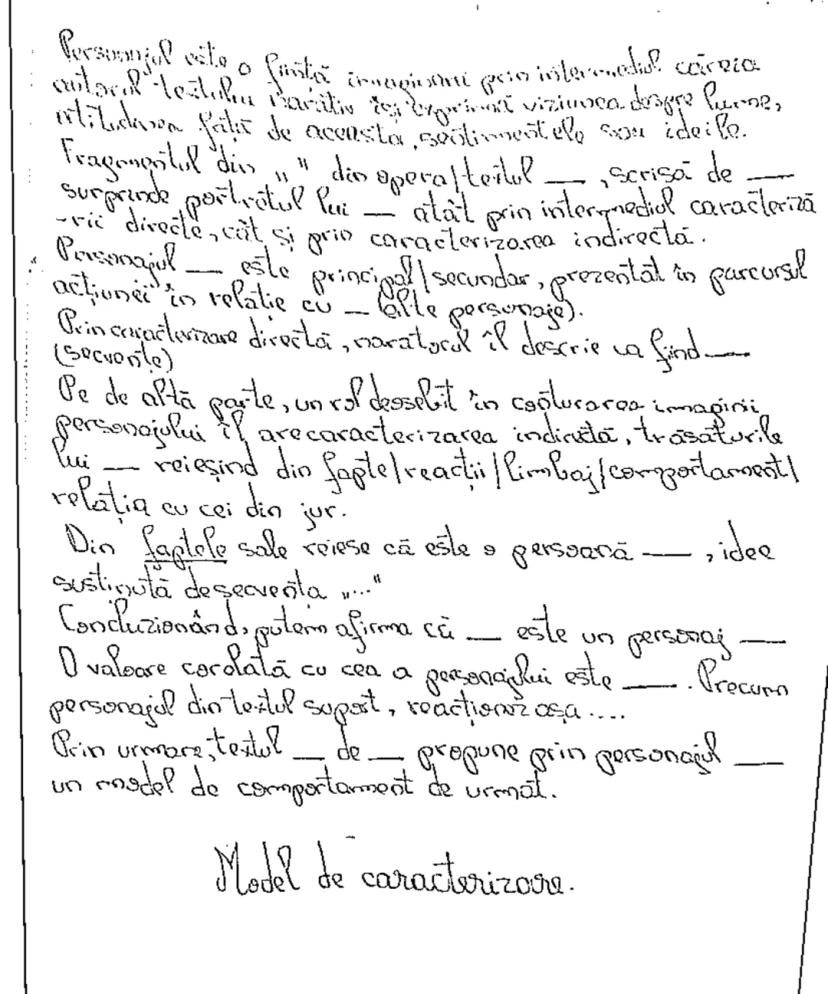 Personajul este o ființă imaginară prin intermediul căreia
autorul textului narativ își exprimă viziunea despre lume,
atitudinea față de aceasta, sentimentele sau ideile.
Fragmentul din „ " din opera/textul __, scrisă de __
surprinde portretul lui __ atât prin intermediul caracteriză
-rii directe, cât și prin caracterizarea indirectă.
Personajul __ este principal/secundar, prezentat în parcursul
acțiunei în relație cu __ (alte personaje).
Prin caracterizare directă, naratorul îl descrie ca fiind __
(secvențe)
Pe de altă parte, un rol deosebit în conturarea imaginii
personajului îl are caracterizarea indirectă, trăsăturile
lui __ reieșind din fapte/reacții/limbaj/comportament/
relația cu cei din jur.
Din faptele sale reiese că este o persoană __, idee
susținută de secvența „..."
Concluzionând, putem afirma că __ este un personaj __
O valoare corolată cu cea a personajului este __. Precum
personajul din textul suport, reacționez așa....
Prin urmare, textul __ de __ propune prin personajul __
un model de comportament de urmat.
Model de caracterizare.